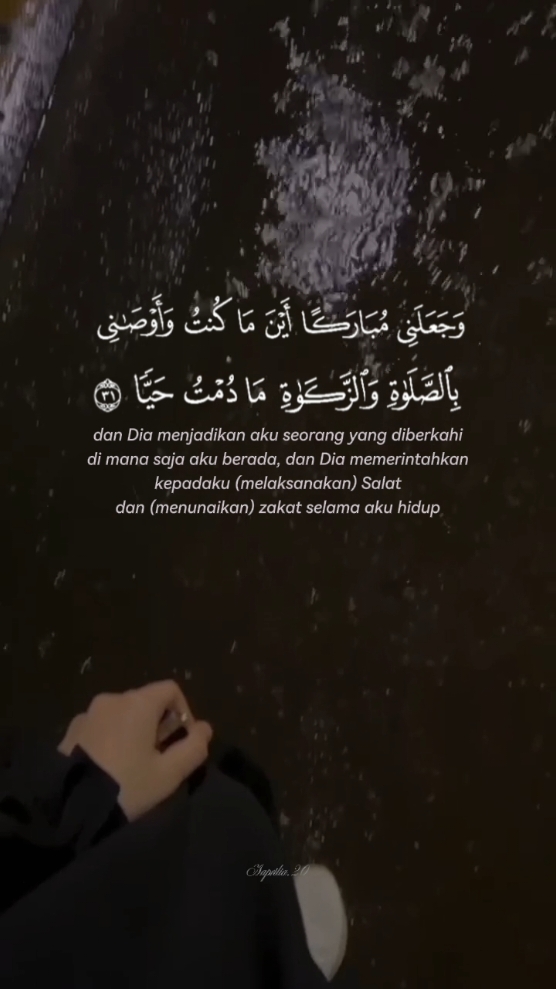 وَجَعَلَنِي مُبَارَكًا أَيْنَ مَا كُنتُ وَأَوْصَٰنِي
بِٱلصَّلَوٰةِ وَٱلزَّكَوٰةِ مَا دُمْتُ حَيًّا ٣١
dan Dia menjadikan aku seorang yang diberkahi
di mana saja aku berada, dan Dia memerintahkan
kepadaku (melaksanakan) Salat
dan (menunaikan) zakat selama aku hidup